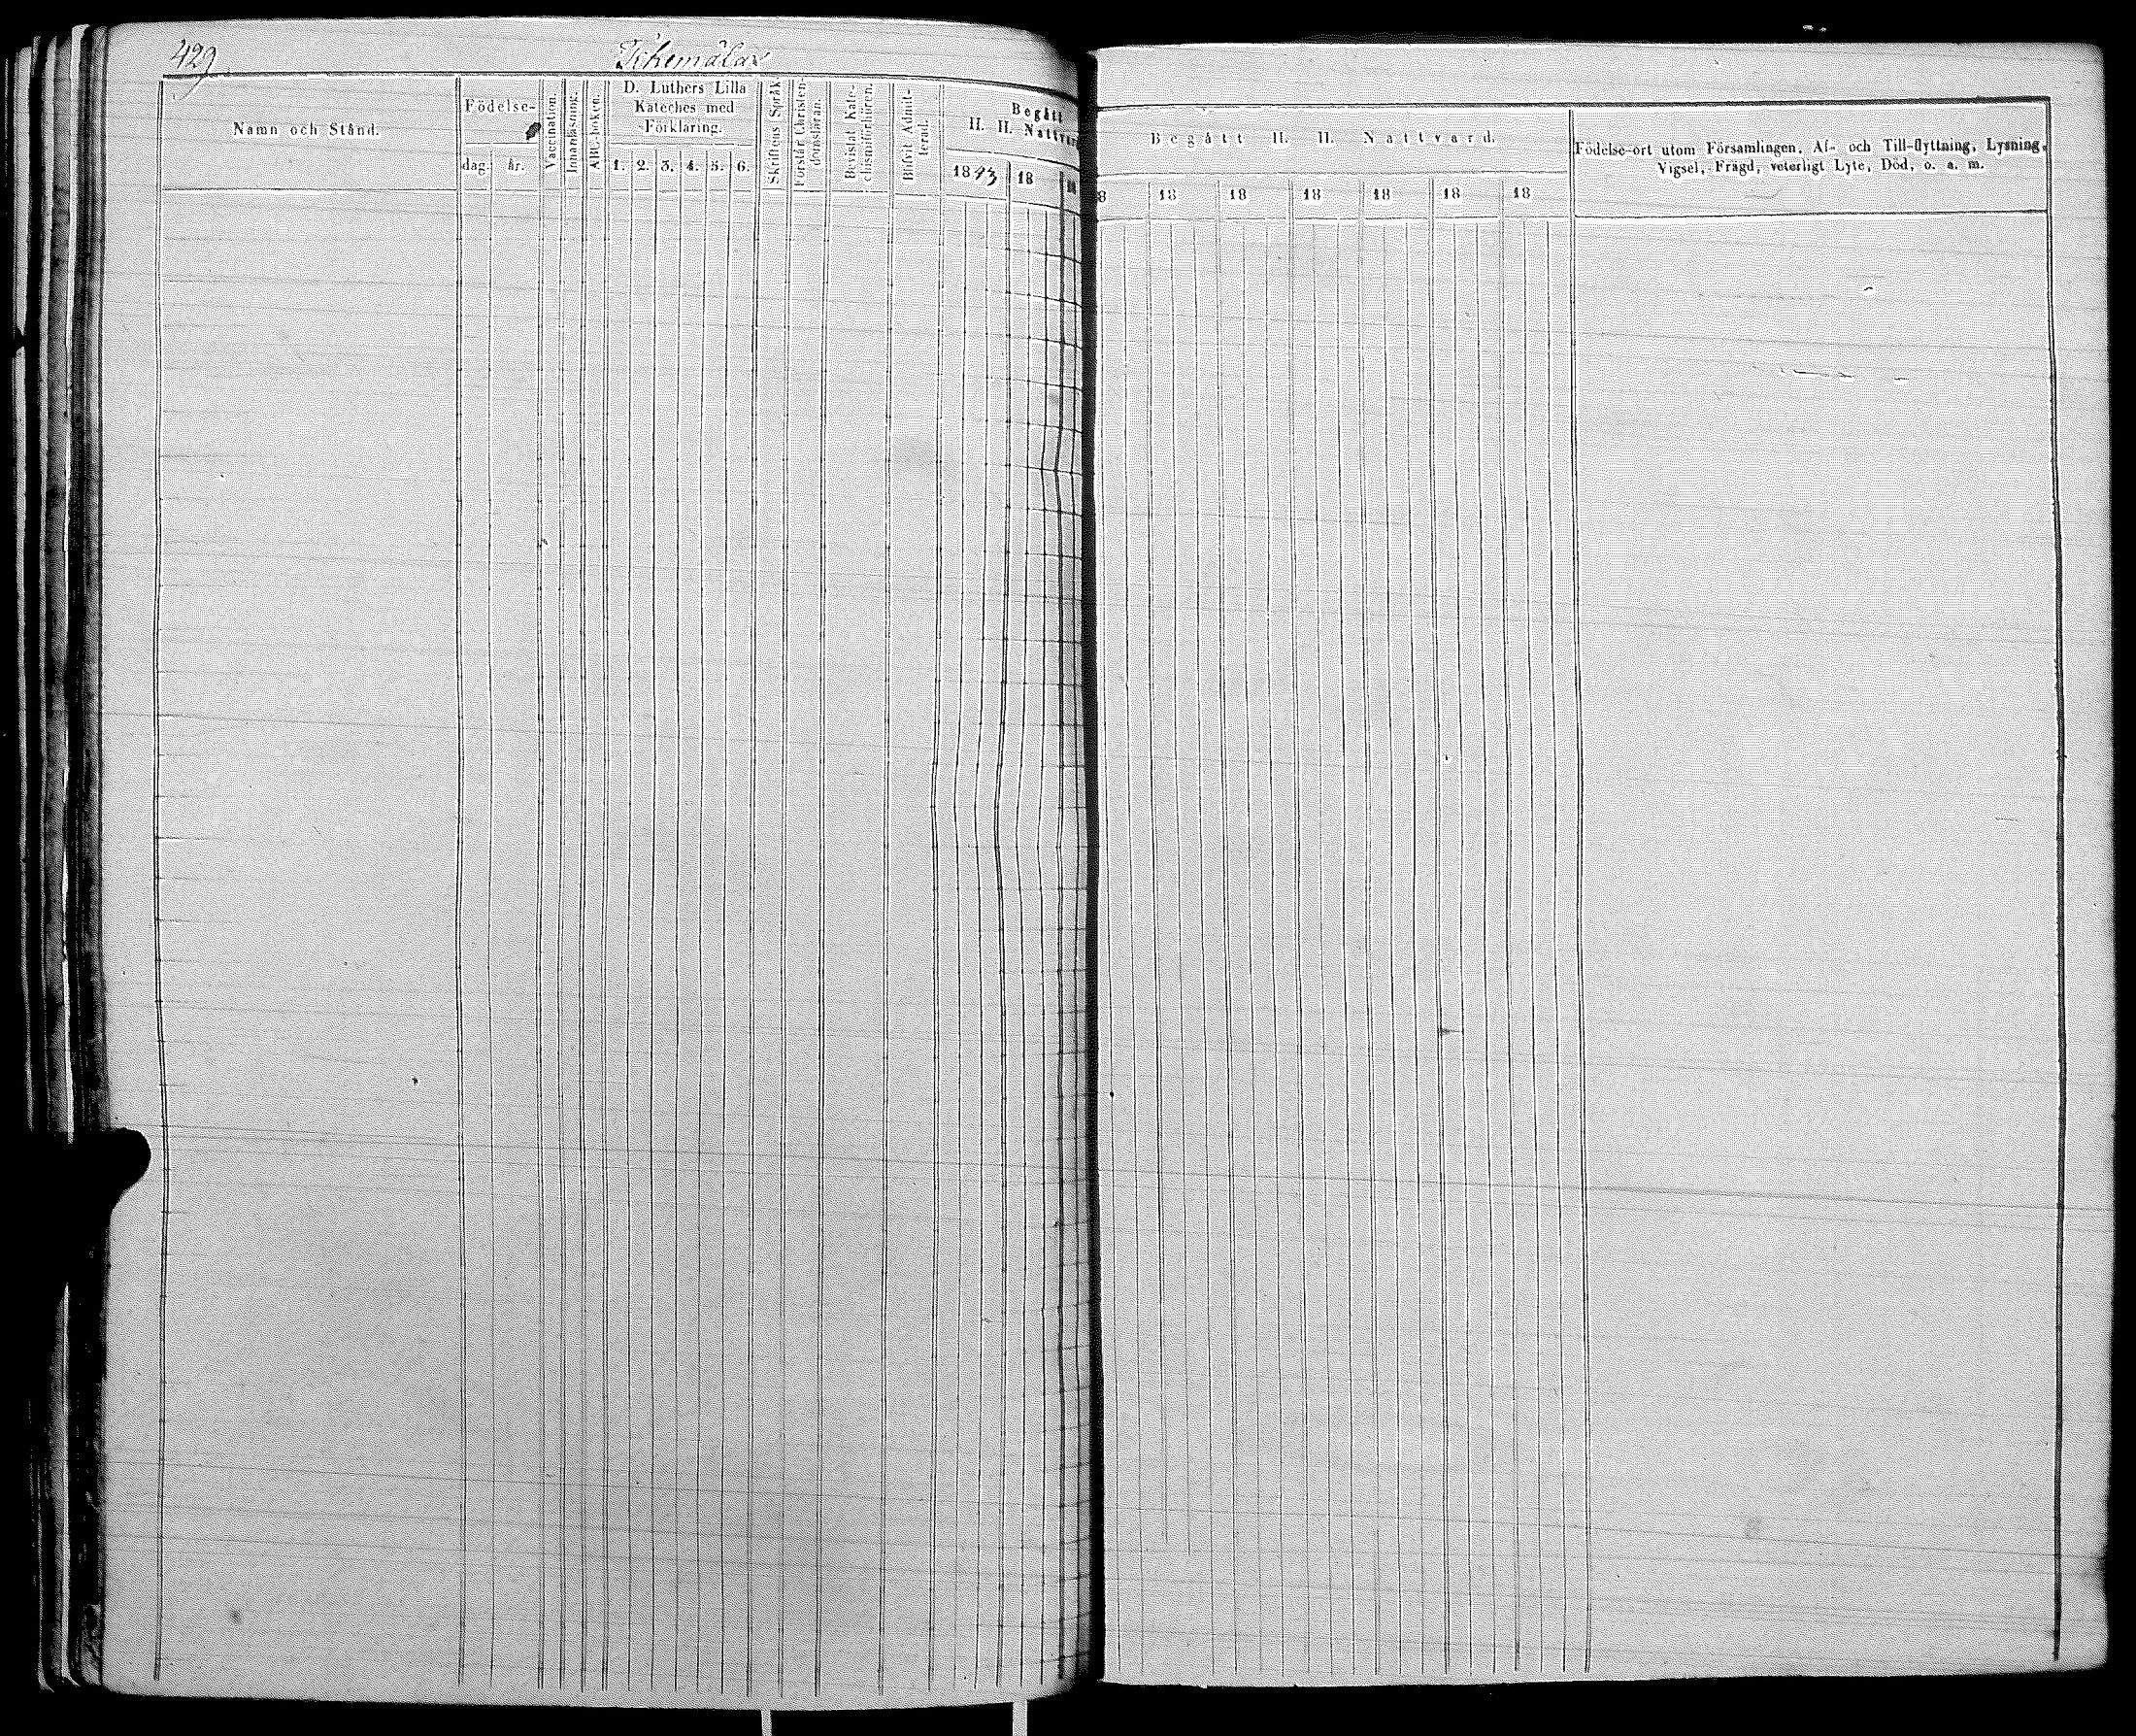 429
Namn och Stånd.
Födelse-
dag.
år.
Vaccination.
Innanläsning.
ABC-boken.
D. Luthers Lilla
Kateches med
Förklaring.
1. 2. 3. 4. 5. 6.
Skriftens Språk
Förstår Christen-
domsläran.
Bevistat Kate-
chismiförhören.
Blifvit Admit-
terad.
Begått
H. H. Nattvard
1843 18
Begått H. H. Nattvard.
8 18 18 18 18 18 18
Födelse-ort utom Församlingen, Af- och Till-flyttning, Lysning,
Vigsel, Frägd, veterligt Lyte, Död, o. s. m.